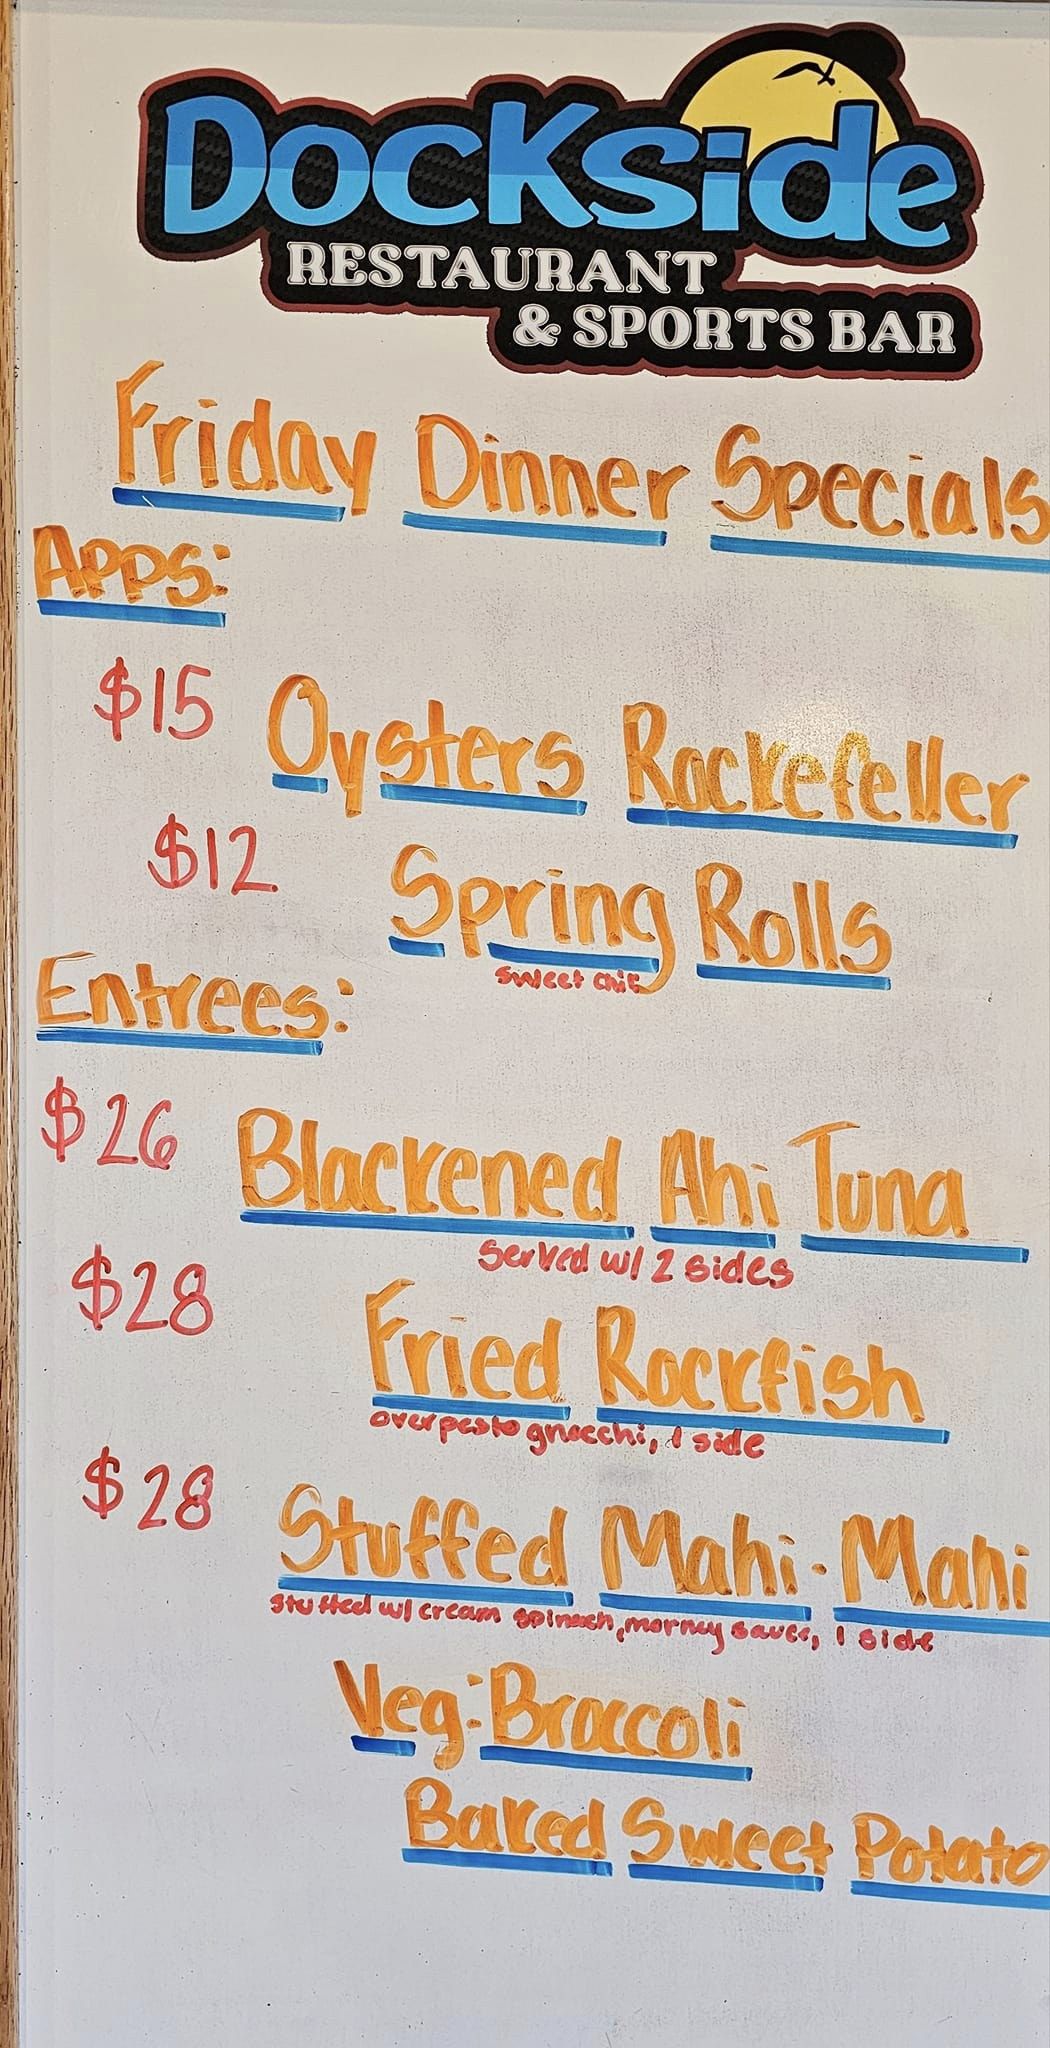 Dockside
RESTAURANT
& SPORTS BAR
Friday Dinner Specials
Apps:
$15 Oysters Rockefeller
$12 Spring Rolls
sweet chili
Entrees:
$26 Blackened Ahi Tuna
served w/ 2 sides
$28 Fried Rockfish
over pesto gnocchi, 1 side
$28 Stuffed Mahi-Mahi
stuffed w/ cream spinach, mornay sauce, 1 side
Veg: Broccoli
Baked Sweet Potato